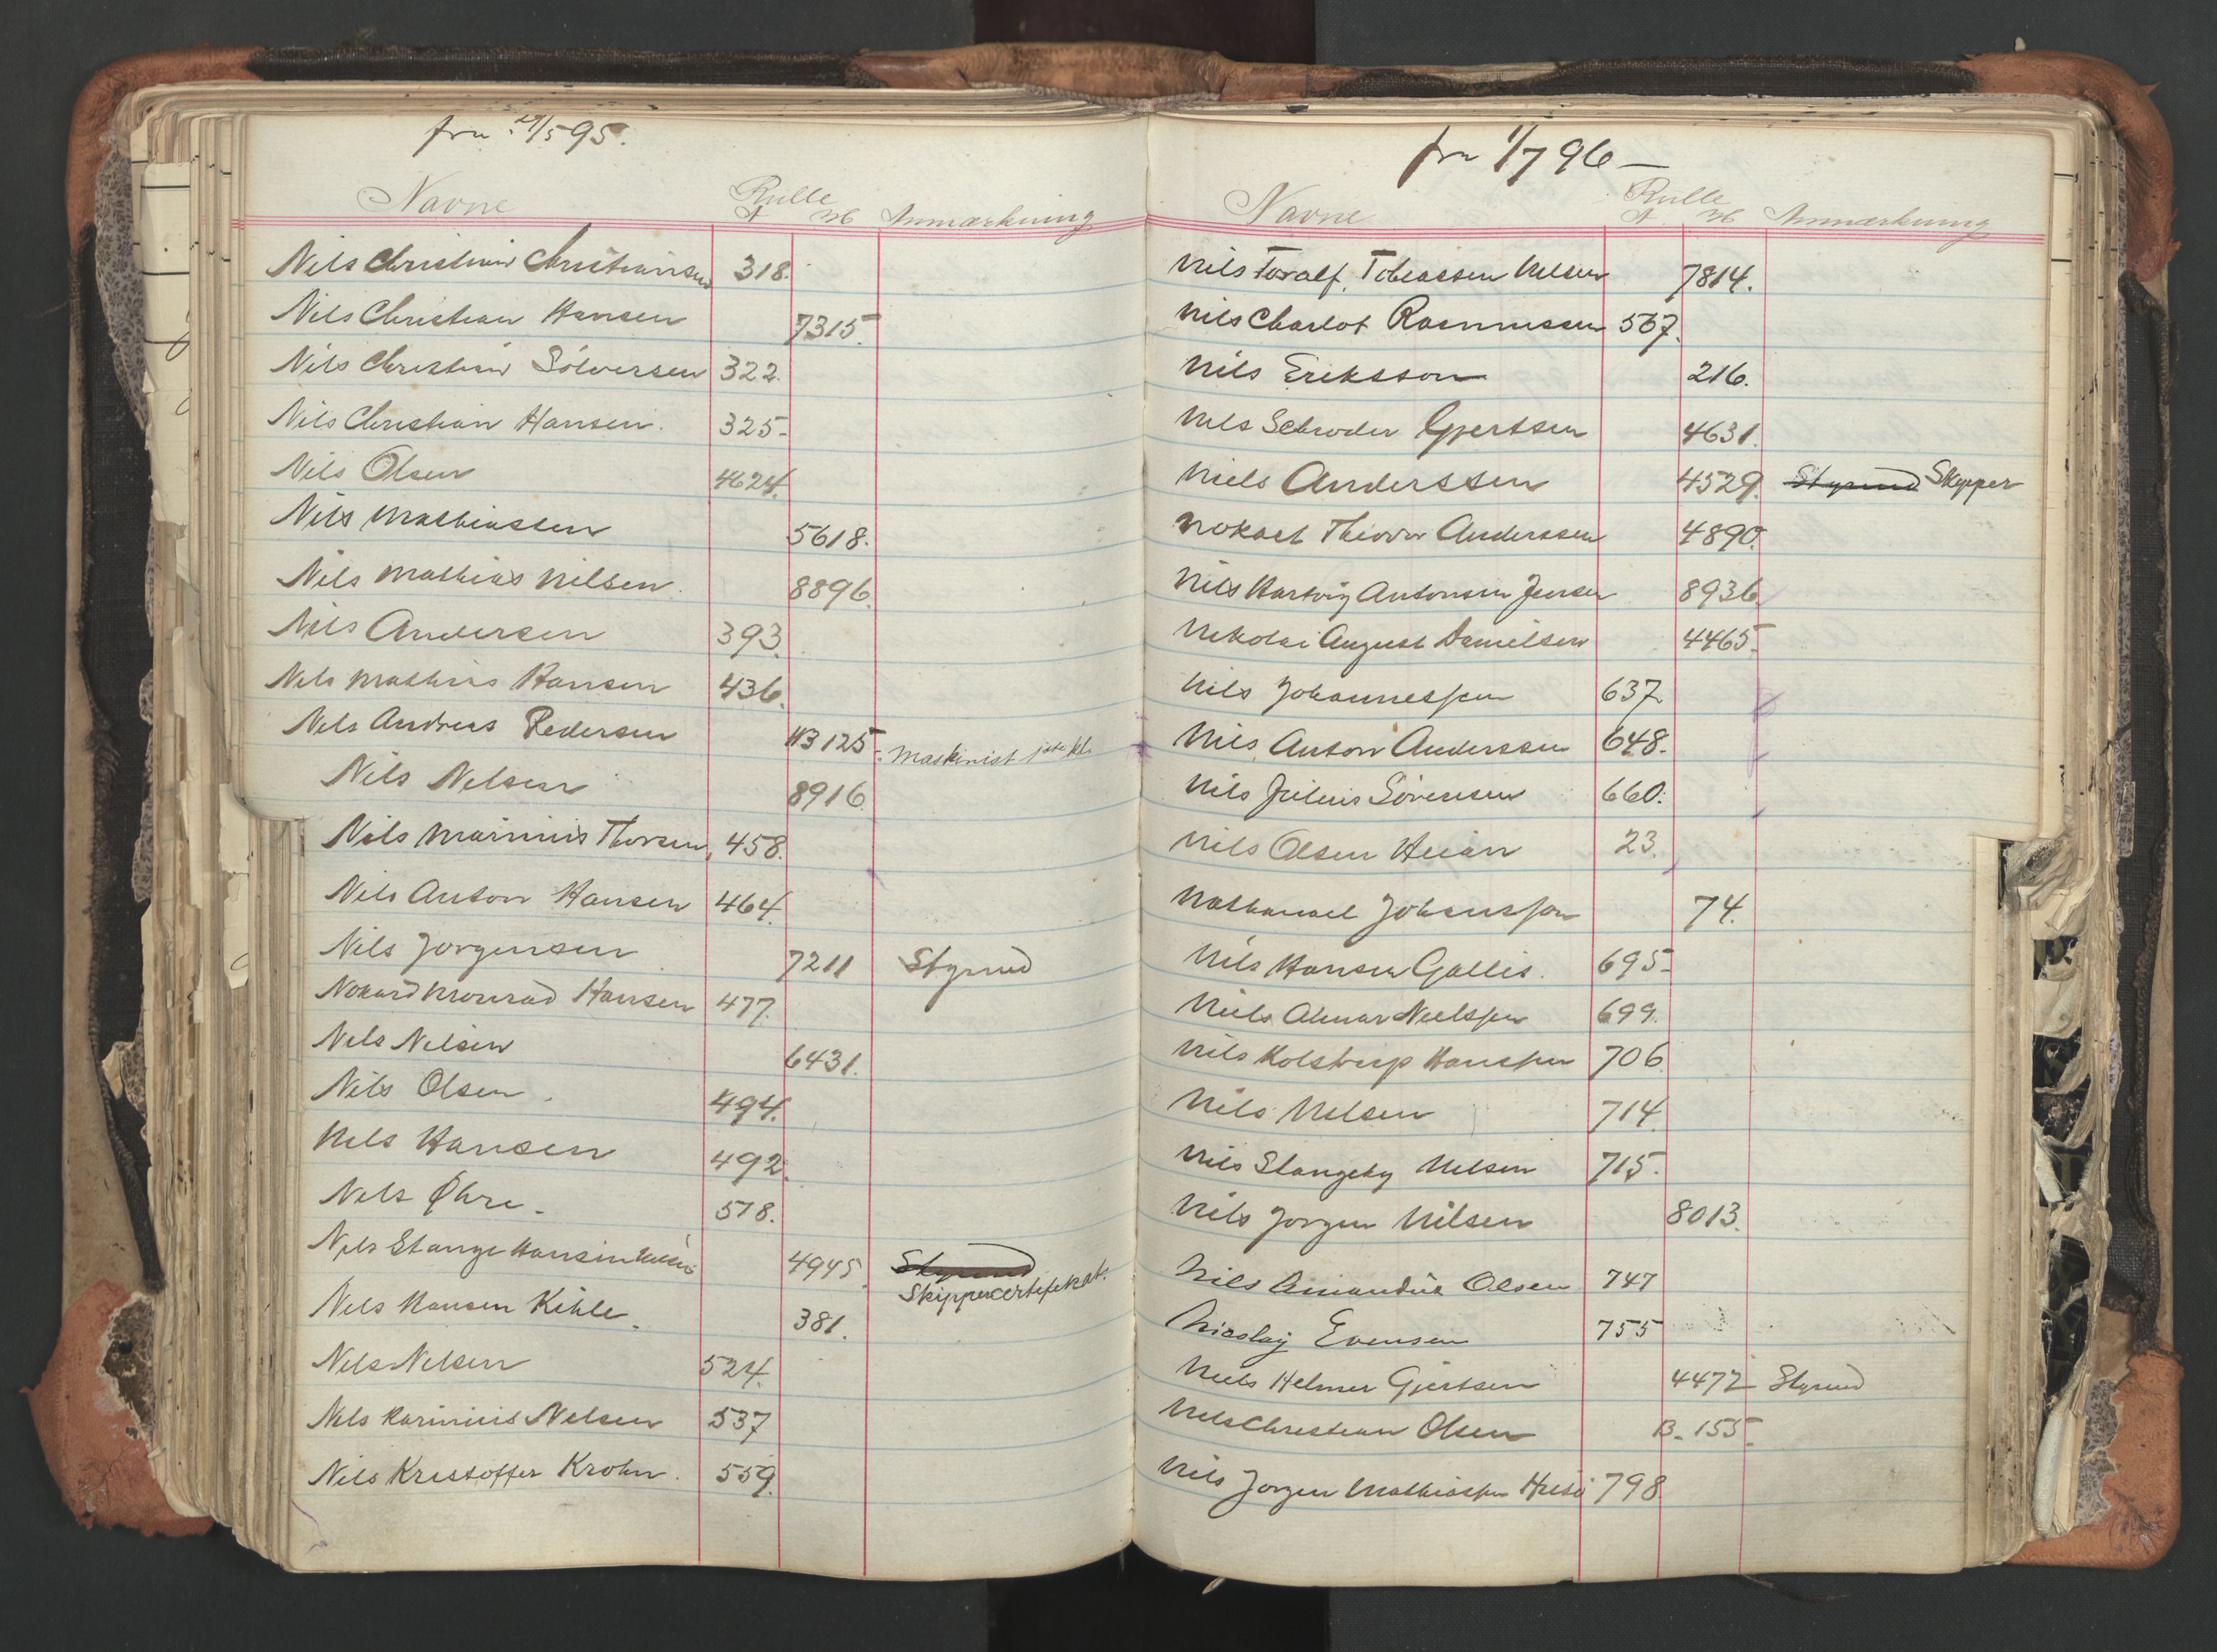 fra 29/5 95.
Navne Rulle A H Anmærkning
Nils Christian Christiansen 318.
Nils Christian Hansen 7315.
Nils Christian Sölversen 322.
Nils Christian Hansen. 325-
Nils Olsen 4624.
Nils Mathiassen 5618.
Nils Mathias Nilsen. 8896.
Nils Andersen 393.
Nils Mathias Hansen 436.
Nils Andreas Pedersen 3125. Maskinist
Nils Nilsen 8916.
Nils Marinius Thorsen, 458.
Nils Anton Hansen 464.
Nils Jörgensen 7211 Styrmd
Monrad Hansen 477.
Nils Nilsen 6431.
Nils Olsen. 494.
Nils Hansen 492.
Nils Øhre. 518.
Nils Stange Hansen Nilsen 4945 Styrmd
Skippercertifikat.
Nils Hansen Kihle. 381.
Nils Nilsen 524.
Nils Karinius Nilsen 537
Nils Kristoffer Krohn. 559.
fra 1/7 96 —
Navne Rulle A H Anmærkning
Nils Toralf Tobiassen Nilsen 7814.
Nils Charlot Rasmussen 567.
Nils Eriksson 216.
Nils Schroder Gjertsen 4631.
Niels Anderssen 4529. Styrmd Skipper
Theodor Anderssen 4890.
Nils Hartvig Antonsen Jensen 8936
Nikolai August Danielsen 4465.
Nils Johannessen 637.
Nils Anton Anderssen 648.
Nils Julius Sörensen 660.
Nils Olsen Heian 23.
Nathanael Johansson 74.
Nils Hansen Gallis. 695-
Niels Almar Nielssen 699.
Nils Kolstrup Hanssen 706
Nils Nilsen 714
Nils Slangeby Nilsen 715.
Nils Jorgen Nilsen 8013.
Nils Amandus Olsen 747
Nicolay Evensen 755
Niels Helmer Gjertsen 4472 Styrmd
Nils Christian Olsen B. 155.
Nils Jorgen Mathiassen Husö 798